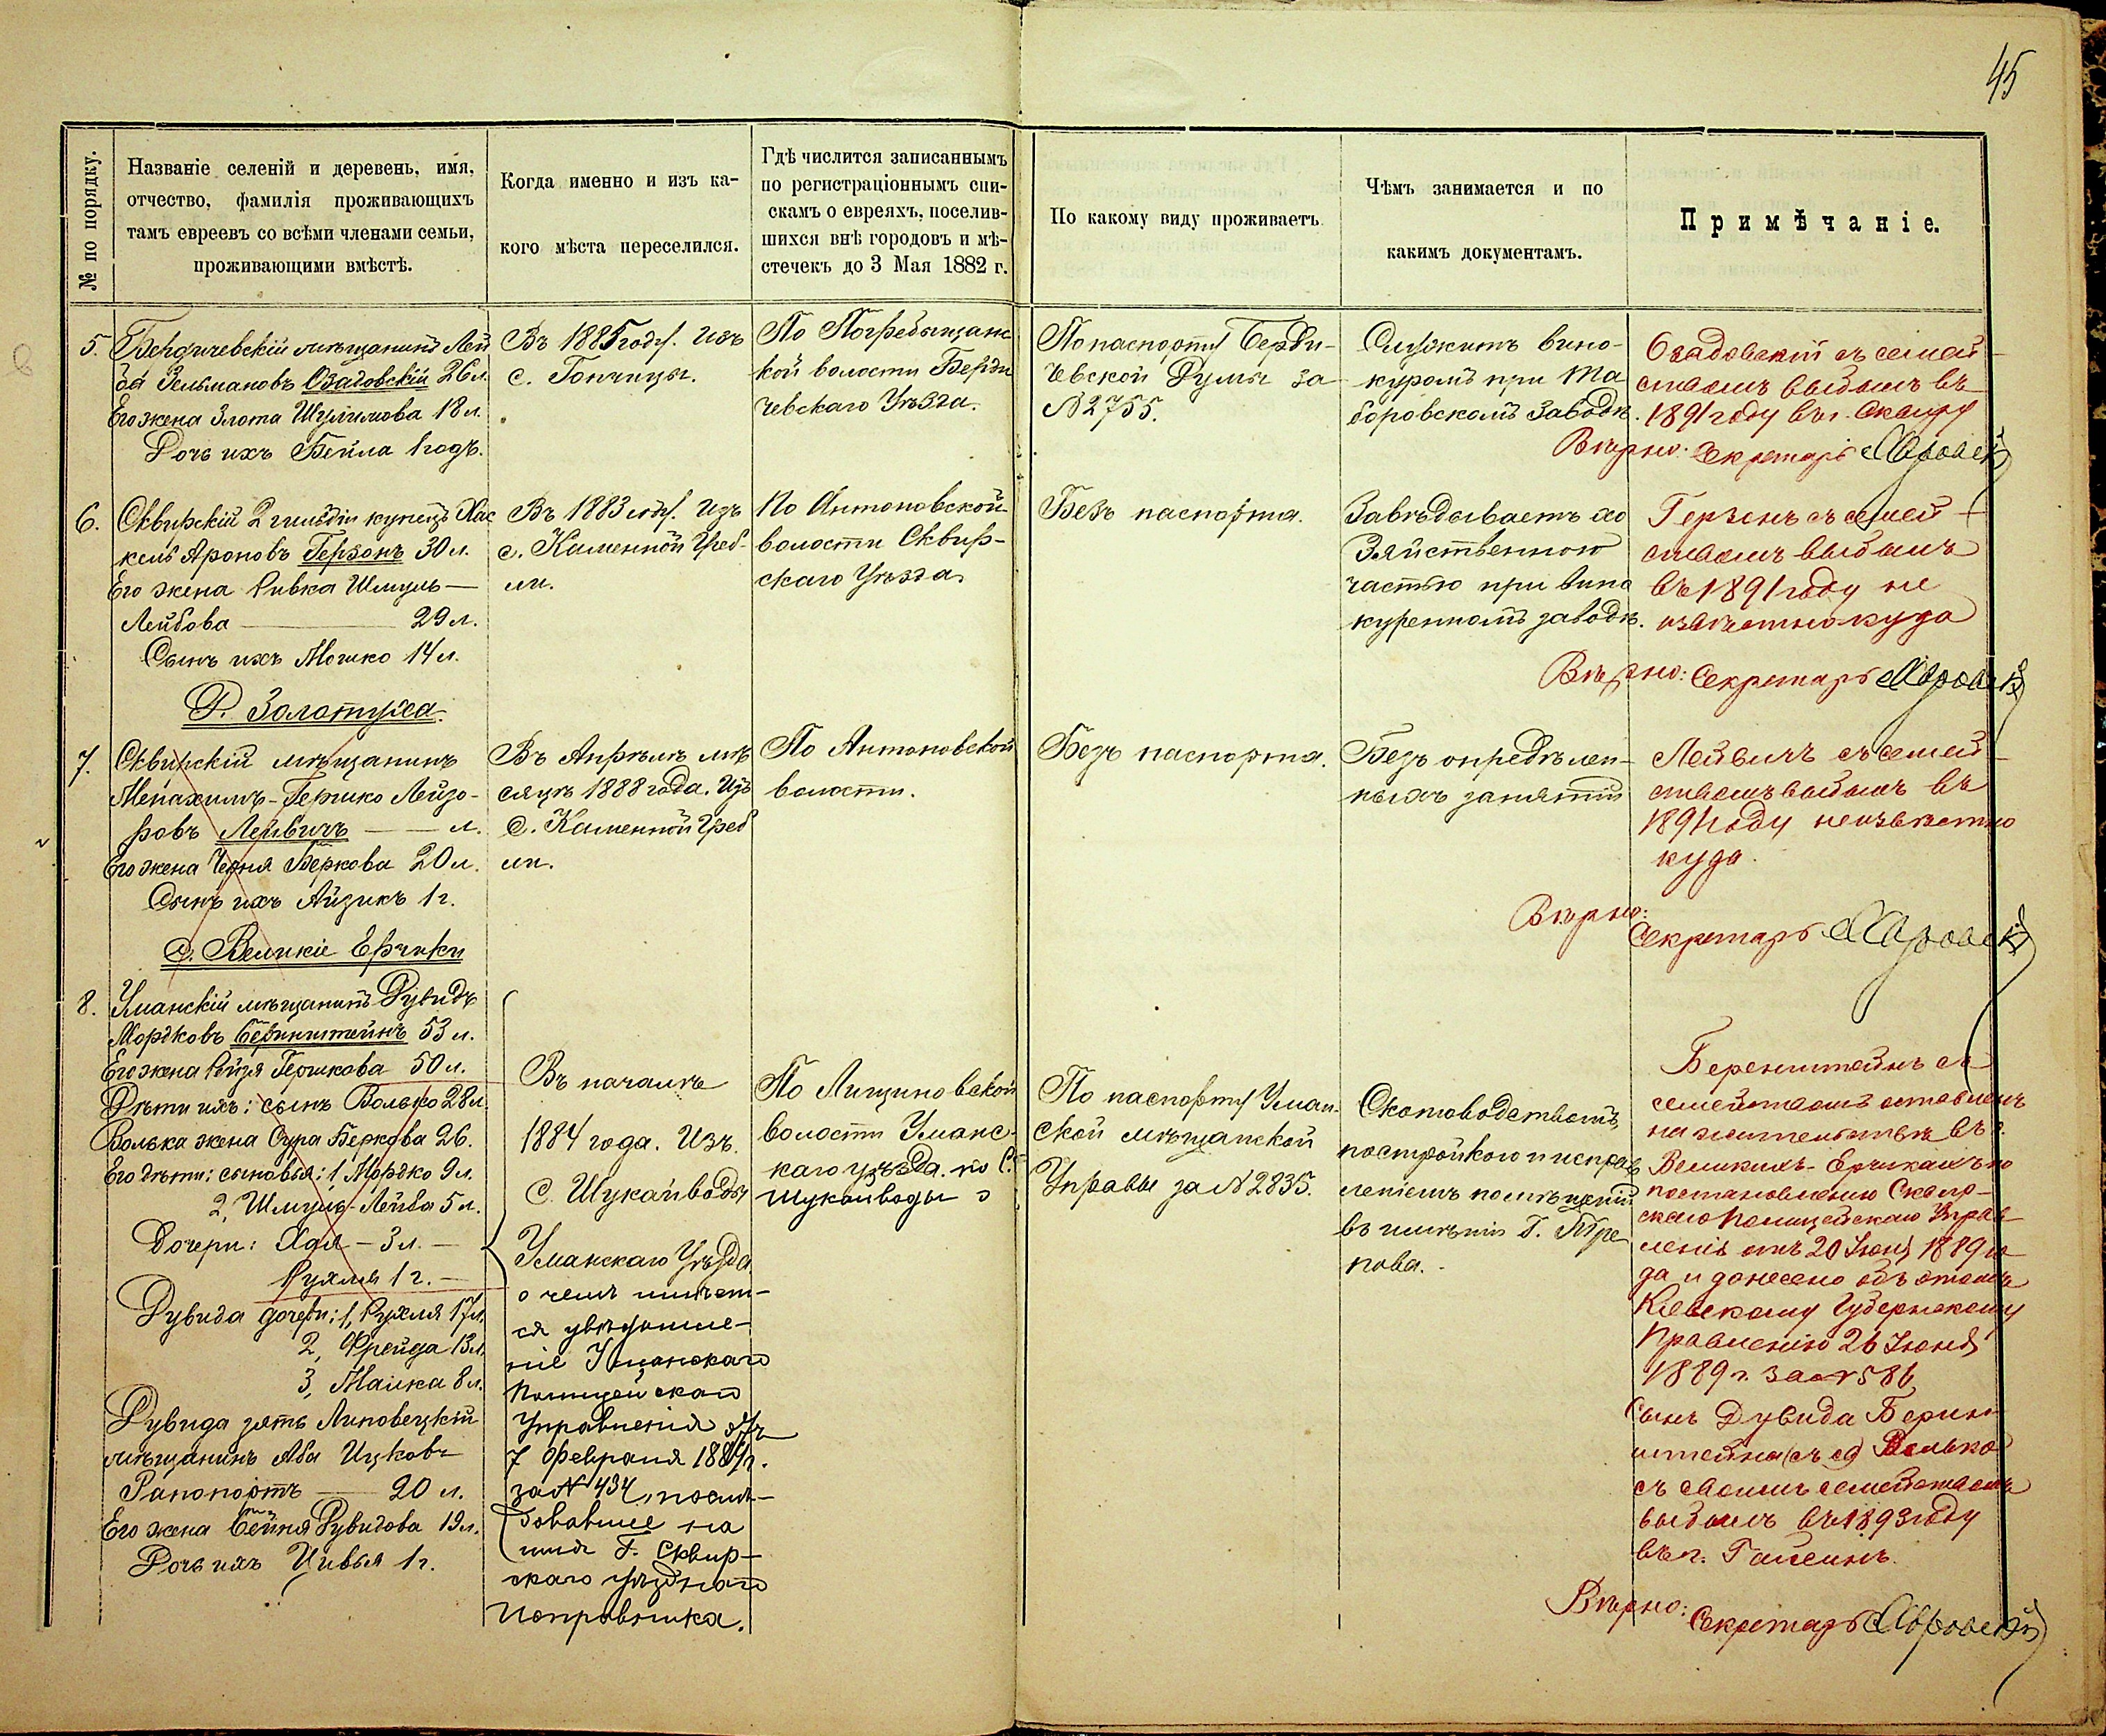 45
№ по порядку.
Названіе селеній и деревень, имя,
отчество, фамилія проживающихъ
тамъ евреевъ со всѣми членами семьи,
проживающими вмѣстѣ.
Когда именно и изъ ка-
кого мѣста переселился.
Гдѣ числится записаннымъ
по регистраціоннымъ спи-
скамъ о евреяхъ, поселив-
шихся внѣ городовъ и мѣ-
стечекъ до 3 Мая 1882 г.
По какому виду проживаетъ.
Чѣмъ занимается и по
какимъ документамъ.
Примѣчаніе.
5. Бердичевскій мѣщанинъ Лей
ба Зельмановъ Озадовскій 26 л.
Его жена Злота Шулимова 18 л.
Дочь ихъ Бейла 1 годъ.
Въ 1885 году. Изъ
с. Гопчицы.
По Погребыщанс
кой волости Берди
чевскаго Уѣзда.
По паспорту Берди-
чевской Думы за
№ 2755.
Служитъ вино-
куромъ при Та
боровскомъ заводѣ.
Озадовскій съ семей-
ствомъ выбылъ въ
1891 году въ г. Сквиру
Вѣрно: Секретарь
6. Сквирскій 2 гильдіи купецъ Хас
кель Ароновъ Герзонъ 30 л.
Его жена Ривка Шмуль-
Лейбова — 29 л.
Сынъ ихъ Мошко 14 л.
Въ 1883 году. Изъ
с. Каменной Греб-
ли.
По Антоновской
волости Сквир-
скаго Уѣзда.
Безъ паспорта.
Завѣдываетъ хо
зяйственною
частью при вино
куренномъ заводѣ.
Герзонъ съ семей-
ствомъ выбылъ
въ 1891 году не
извѣстно куда
Вѣрно: Секретарь
Д. Золотуха.
7. Сквирскій мѣщанинъ
Менахимъ-Гершко Лейзо-
ровъ Лейвичъ — л.
Его жена Черня Беркова 20 л.
Сынъ ихъ Айзикъ 1 г.
Въ Апрѣлѣ мѣ
сяцѣ 1888 года. Изъ
с. Каменной Греб
ли.
По Антоновской
волости.
Безъ паспорта.
Безъ опредѣлен-
ныхъ занятій
Лейвичъ съ семей-
ствомъ выбылъ въ
1891 году неизвѣстно
куда.
Вѣрно:
Секретарь
с. Великіе Ерчики
8. Уманскій мѣщанинъ Дувидъ
Мордковъ Беринштейнъ 53 л.
Его жена Рейзя Гершкова 50 л.
Дѣти ихъ: сынъ Волько 28 л.
Волька жена Сура Беркова 26.
Его дѣти: сыновья: 1, Мордко 9 л.
2, Шмуль-Лейба 5 л.
Дочери: Хая — 3 л. —
Рухля 1 г. —
Дувида дочери: 1, Рухля 17 л.
2, Фрейда 13 л.
3, Малка 8 л.
Дувида зять Липовецкій
мѣщанинъ Аба Ицковъ
Рапопортъ — 20 л.
Его жена Бейня Дувидова 19 л.
Дочь ихъ Цивья 1 г.
Въ началѣ
1884 года. Изъ
с. Шукайводы
Уманскаго Уѣзда,
о чемъ имѣет-
ся увѣдомле-
ніе Уманскаго
Полицейскаго
Управленія отъ
7 Февраля 1889 г.
за № 434, послѣ-
довавшее на
имя Г. Сквир-
скаго уѣзднаго
Исправника.
По Лищиновской
волости Уманс-
каго уѣзда. по с.
Шукайводы
По паспорту Уман-
ской мѣщанской
Управы за № 2835.
Скотоводствомъ,
постройкою и исправ
леніемъ помѣщеній
въ имѣніи Г. Тре
пова.
Беренштейнъ съ
семействомъ оставленъ
на жительствѣ въ с.
Великихъ-Ерчикахъ по
постановленію Сквир-
скаго Полицейскаго Управ
ленія отъ 20 Іюня 1889 го
да и донесено объ этомъ
Кіевскому Губернскому
Правленію 26 Іюня
1889 г. за № 586
Сынъ Дувида Берин-
штейна Волько
съ своимъ семействомъ
выбылъ въ 1893 году
въ г. Гайсинъ.
Вѣрно:
Секретарь